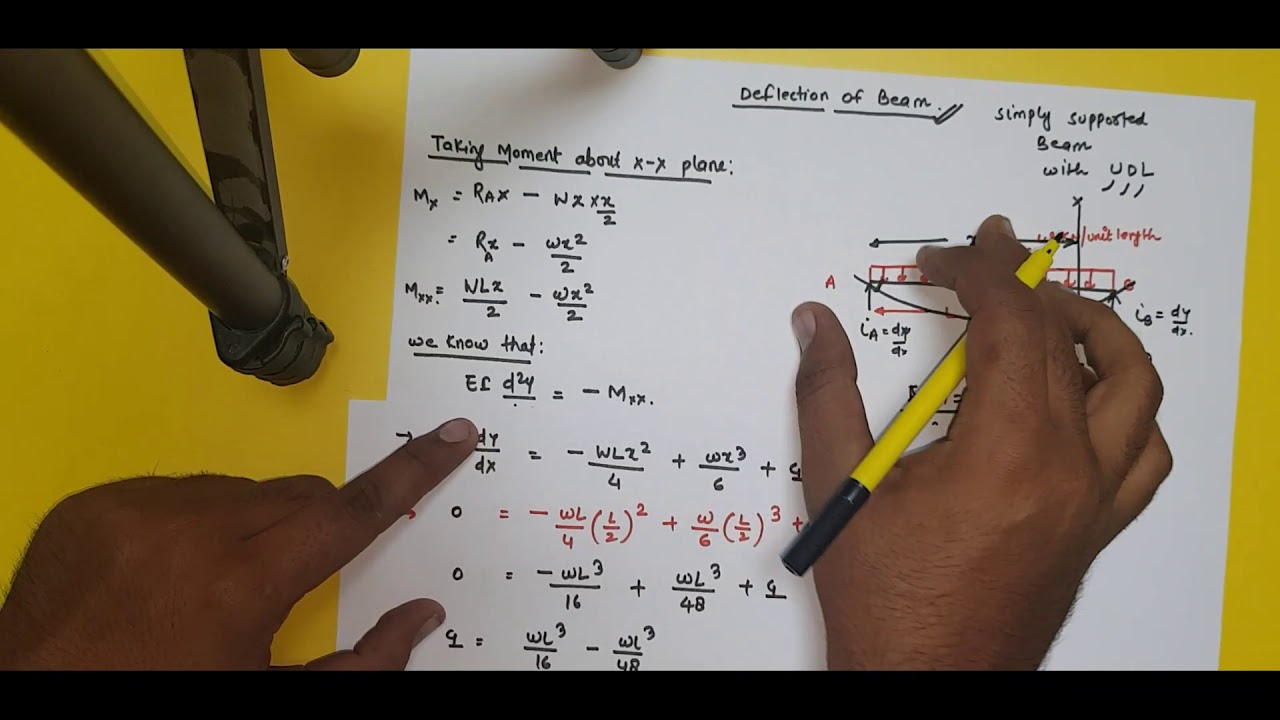 Deflection of Beam.
simply supported
Beam
with UDL
Taking Moment about x-x plane:
Mx = RAx - Wx × x/2
= RAx - wx²/2
Mxx = WLx/2 - wx²/2
we know that:
EI d²y/ = - Mxx.
→ dy/dx = - WLx²/4 + wx³/6 + C1
→ 0 = - wL/4 (L/2)² + w/6 (L/2)³ +
0 = - wL³/16 + wL³/48 + C1
C1 = wL³/16 - wL³/48
x
/unit length
A
B
iA = dy/dx
iB = dy/dx.